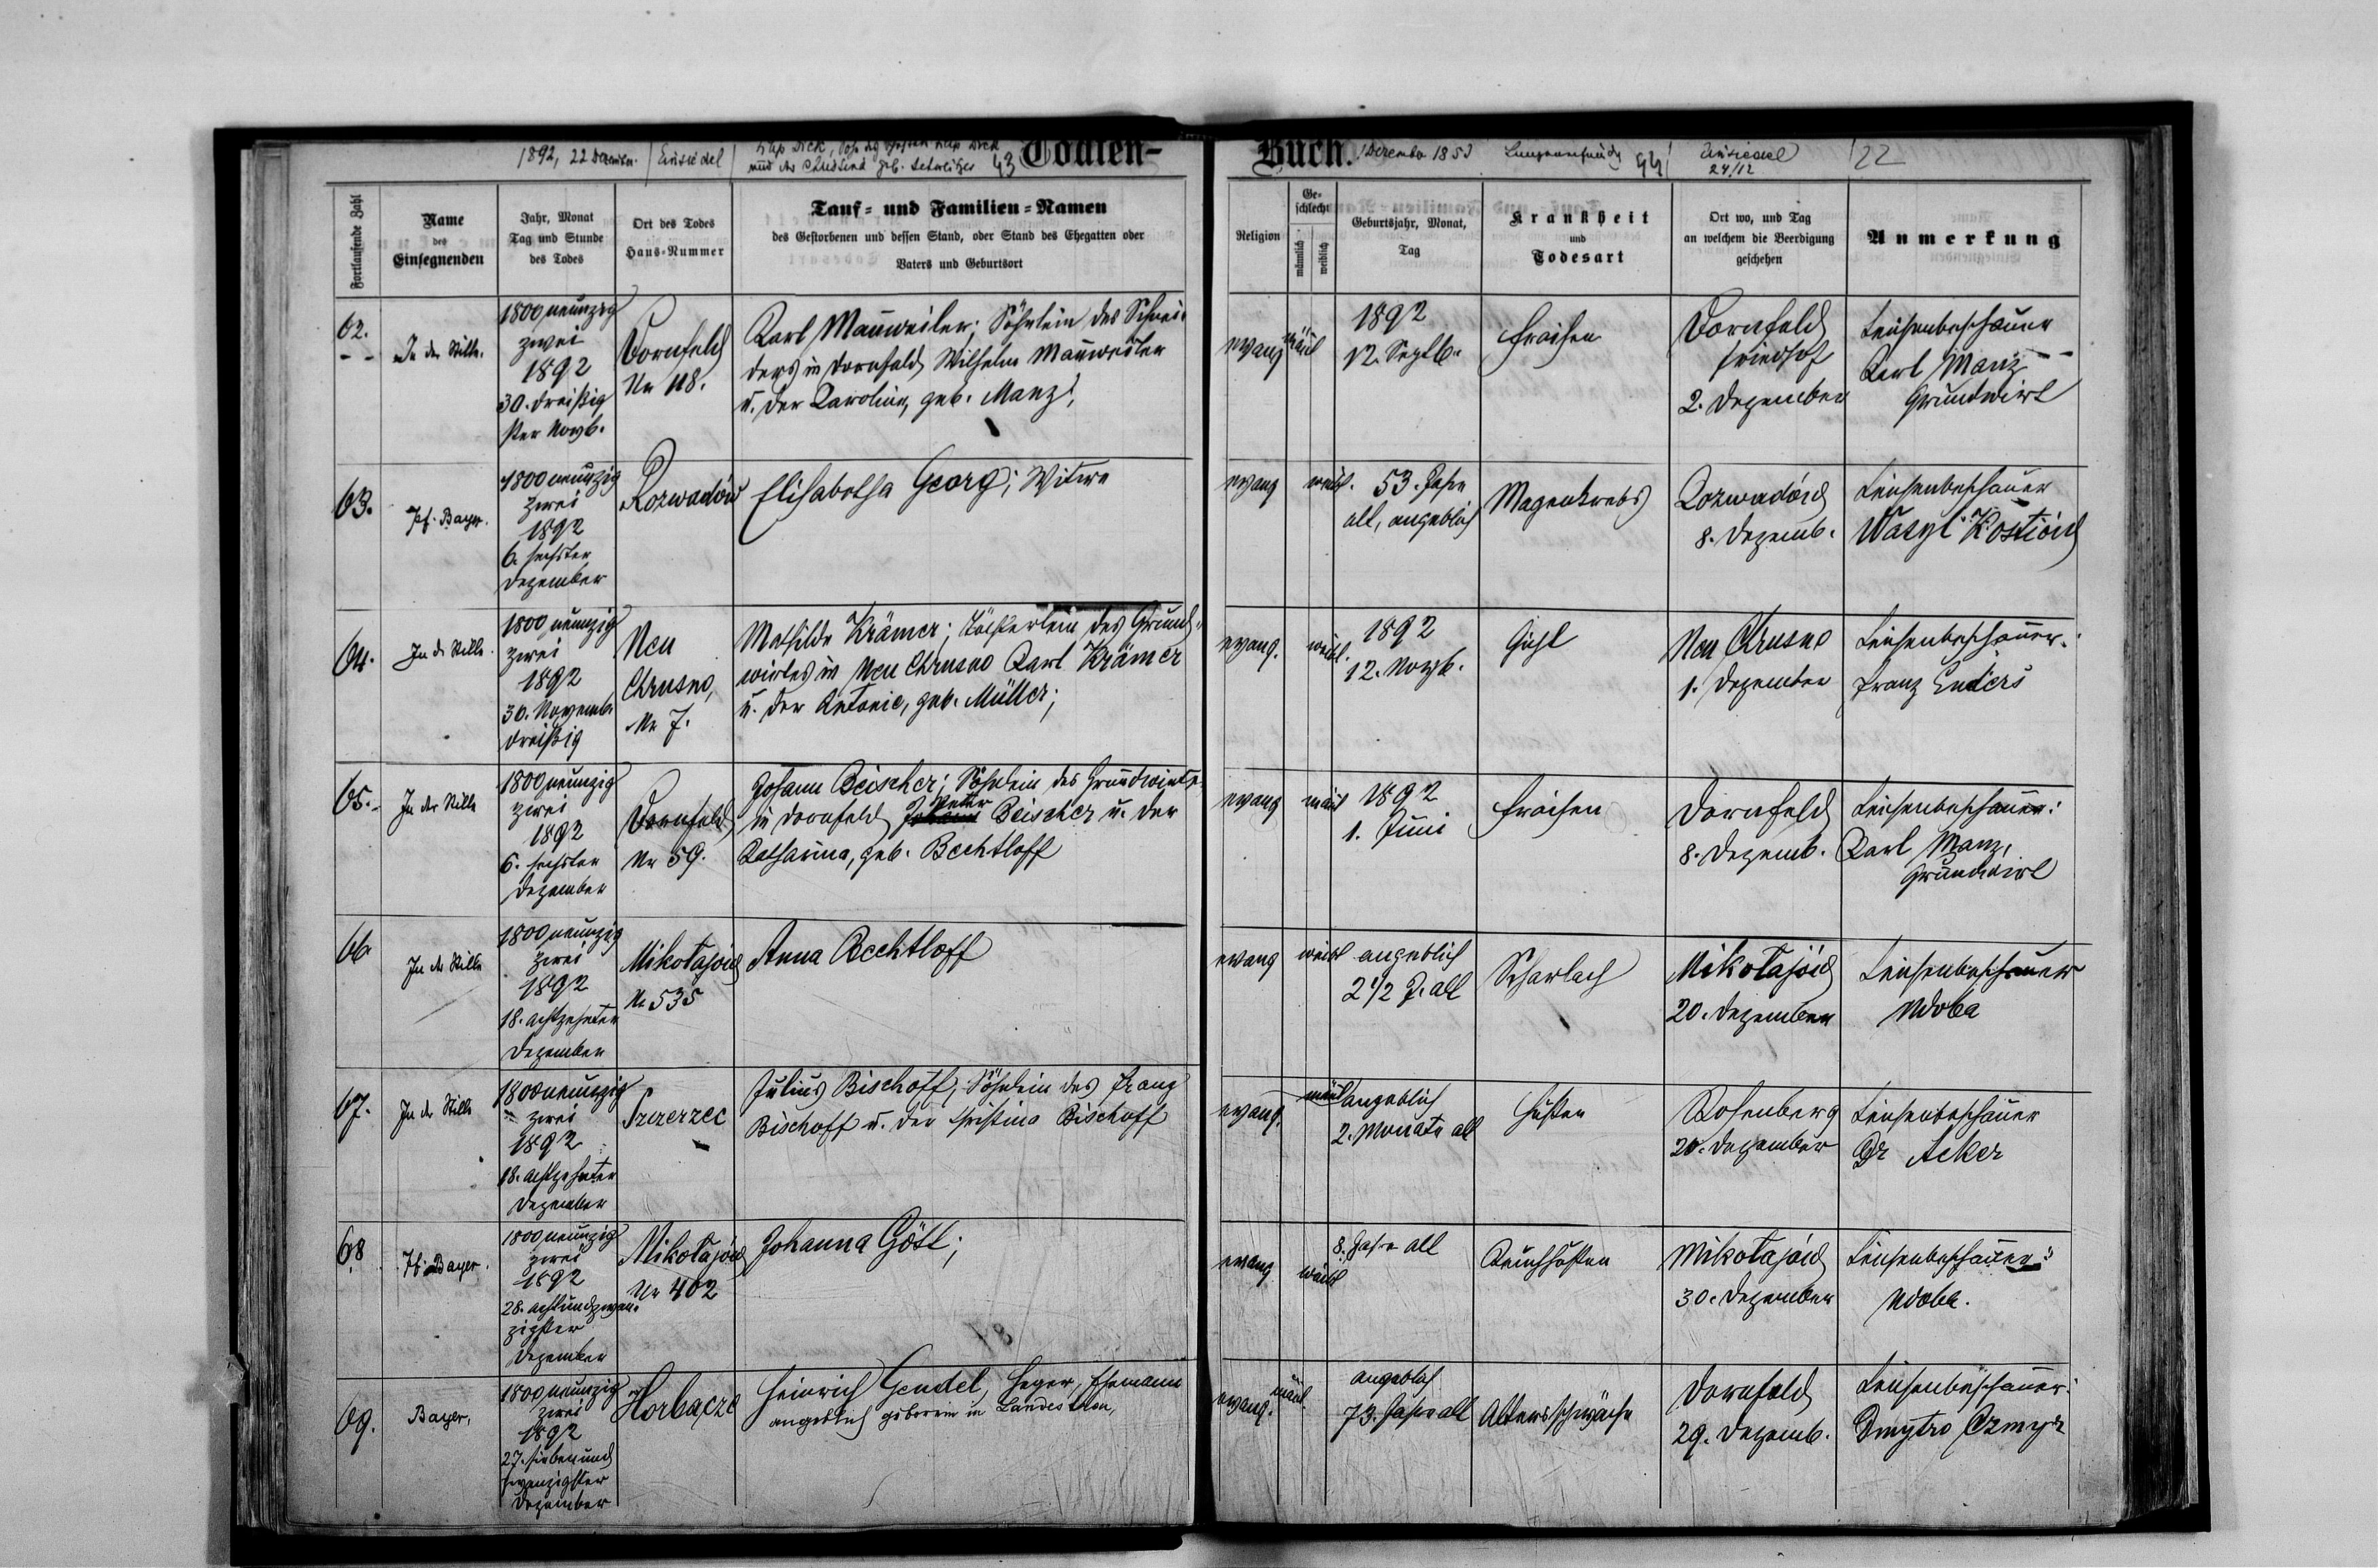 1892, 22 Dezember. Einsiedel
und der Christina geb.
43
Todten-
Fortlaufende Zahl
Name
des
Einsegnenden
Jahr, Monat
Tag und Stunde
des Todes
Ort des Todes
Haus-Nummer
Tauf- und Familien-Namen
des Gestorbenen und dessen Stand, oder Stand des Ehegatten oder
Vaters und Geburtsort
62.
In der Stille.
1800 neunzig
zwei
1892
30. dreißig
ster Novb.
Dornfeld
Nr 118.
Karl Mauweiler; Söhnlein des Schnei-
ders in Dornfeld Wilhelm Mauweiler
u. der Karolina, geb. Manz;
63.
Pf. Bayer.
1800 neunzig
zwei
1892
6. sechster
Dezember
Rozwadów
Elisabetha Georg; Witwe
64.
In d. Stille.
1800 neunzig
zwei
1892
30. Novemb.
dreißig
Neu
Chrusno,
Nr 7.
Mathilde Krämer; Töchterlein des Grund-
wirtes in Neu Chrusno Karl Krämer
u. der Antonie, geb. Müller;
65.
In der Stille
1800 neunzig
zwei
1892
6. sechster
Dezember
Dornfeld
Nr 59.
Johann Beischer; Söhnlein des Grundwirtes
Peter
in Dornfeld Johann Beischer u. der
Katharina, geb. Bechtloff
66
In der Stille
1800 neunzig
zwei
1892
18. achtzehnter
Dezember
Mikołajów
Nr 535
Anna Bechtloff
67.
In der Stille
1800 neunzig
zwei
1892
18. achtzehnter
Dezember
Szczerzec
Julius Bischoff, Söhnlein des Franz
Bischoff u. der Christina Bischoff
68
Pf. Bayer.
1800 neunzig
zwei
1892
28. achtundzwan-
zigster
Dezember
Mikołajów
Nr 402
Johanna Gött;
69.
Bayer,
1800 neunzig
zwei
1892
27. siebenund
zwanzigster
Dezember
Horbacze
Heinrich Gendel, Heger, Ehemann
angeblich geboren in Landestreu,
Buch.
1 Dezember 1853
44
Einsiedel
24/12
22
Religion
Ge-
schlecht
männlich
weiblich
Geburtsjahr, Monat,
Tag
Krankheit
und
Todesart
Ort wo, und Tag
an welchem die Beerdigung
geschehen
Anmerkung
evang
männl
1892
12. Septb.
Fraisen
Dornfeld
Friedhof
2. Dezember
Leichenbeschauer
Karl Manz
Grundwirt
evang
weibl.
53. Jahre
alt, angeblich
Magenkrebs
Rozwadów
8. Dezemb.
Leichenbeschauer
Wasyl Kostiów
evang.
weibl.
1892
12. Novb.
Gicht
Neu Chrusno
1. Dezember
Leichenbeschauer:
Franz Enders
evang
männl
1892
1. Juni
Fraisen
Dornfeld
8. Dezemb.
Leichenbeschauer:
Karl Manz,
Grundwirt
evang
weibl
angeblich
2 1/2 J. alt
Scharlach
Mikołajów
20. Dezember
Leichenbeschauer
Wdoba
evang.
männl
angeblich
2. Monate alt
Husten
Rosenberg
20. Dezember
Leichenbeschauer
Dr Acker
evang
weibl
8. Jahre alt
Keuchhusten
Mikołajów
30. Dezember
Leichenbeschauer:
Wdoba.
evang.
männl
angeblich
73. Jahre alt
Altersschwäche
Dornfeld
29. Dezemb.
Leichenbeschauer:
Dmytro Czmyr